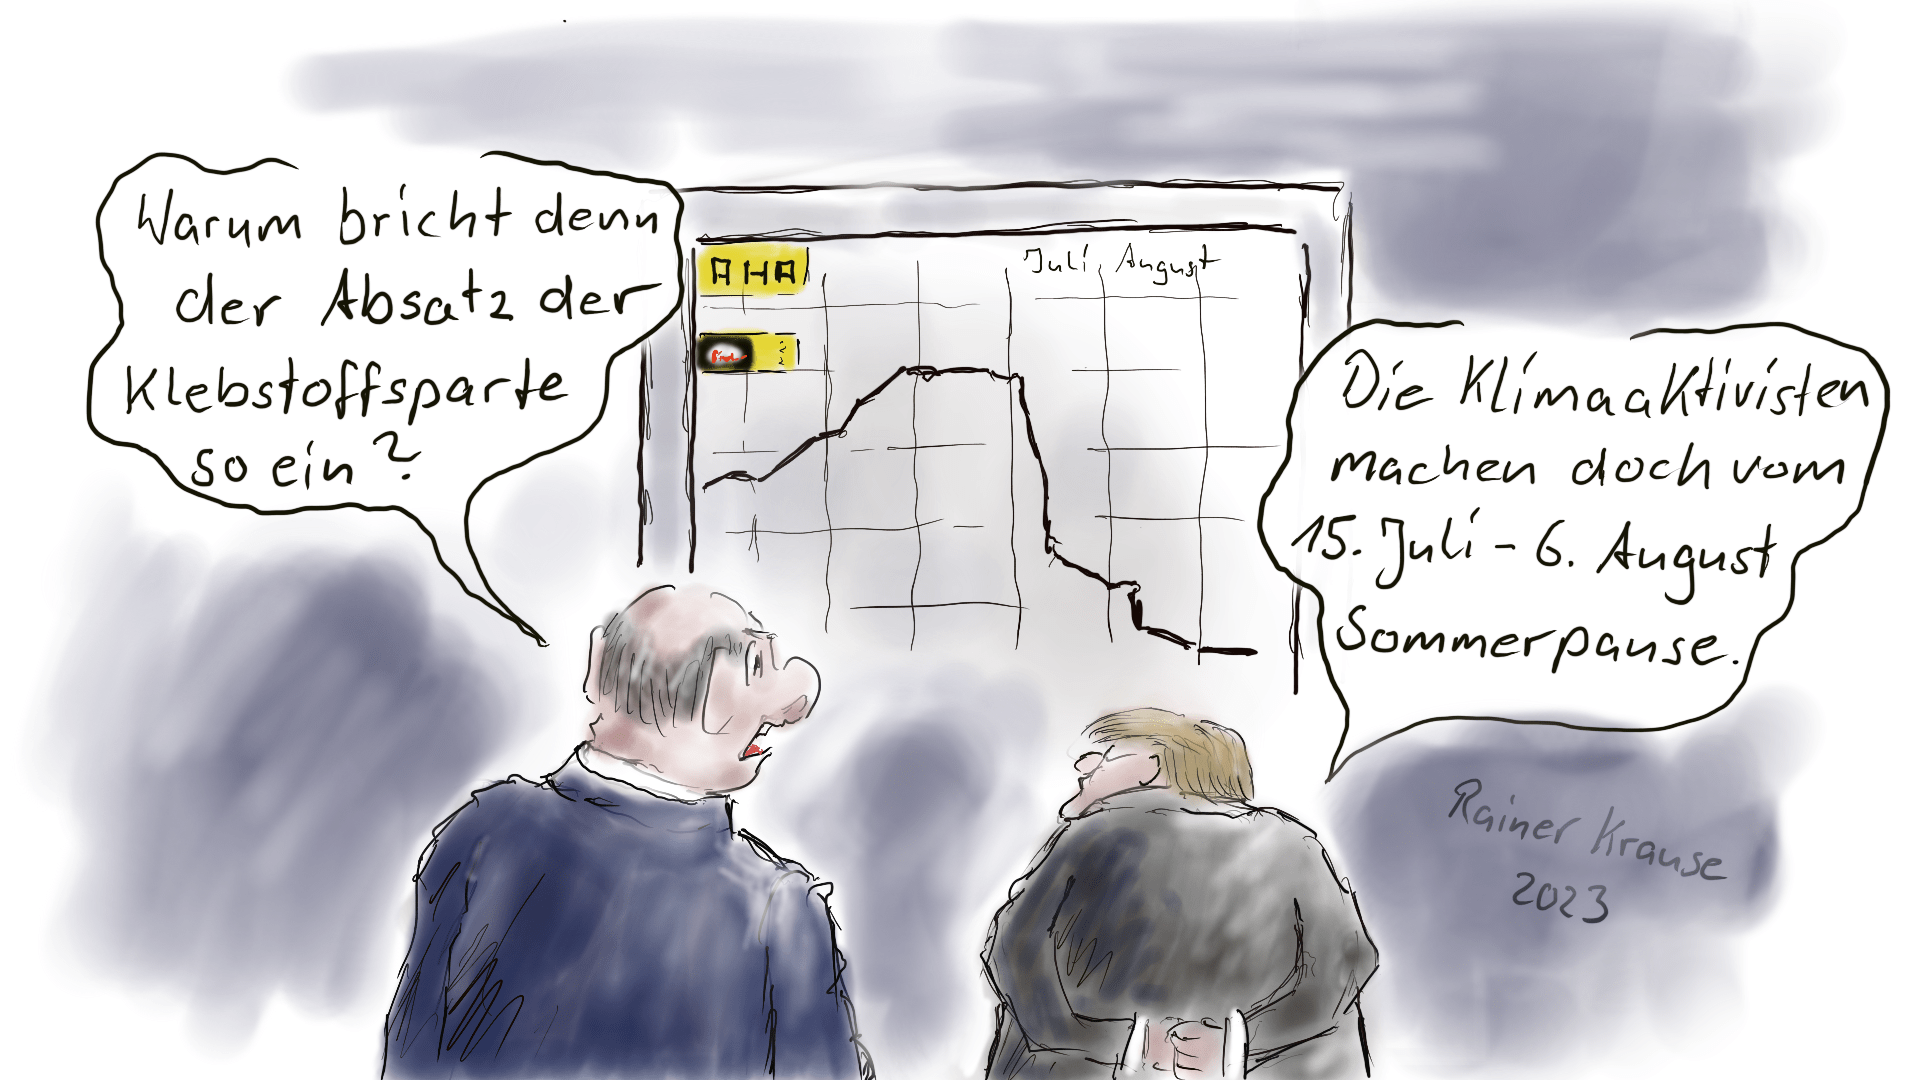 Warum bricht denn
der Absatz der
Klebstoffsparte
so ein?
AHA
Juli August
Die Klimaaktivisten
machen doch vom
15. Juli - 6. August
Sommerpause.
Rainer Krause
2023